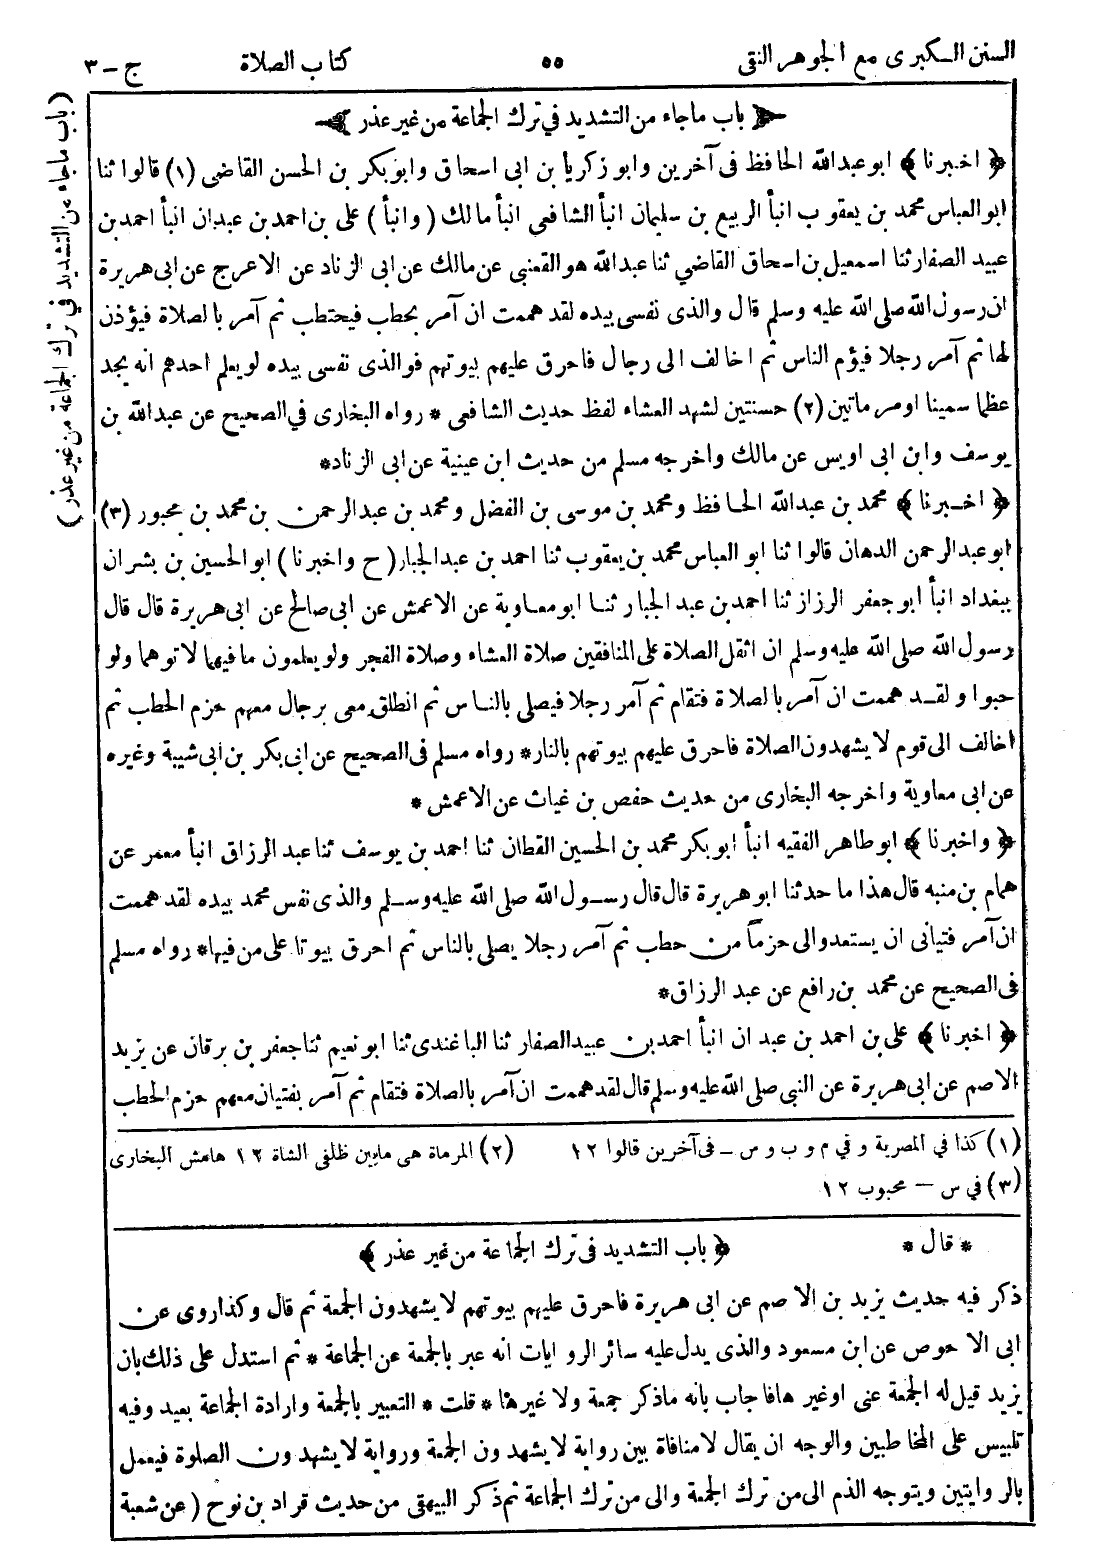 السنن الـكبرى مع الجوهر النقى ٥٥ كتاب الصلاة ج ـ ٣
باب ماجاء من التشديد فى ترك الجماعة من غير عذر
(باب ماجاء من التشديد فى ترك الجماعة من غير عذر)
﴿ اخبرنا ﴾ ابو عبدالله الحافظ فى آخرين وابو زكريا بن ابى اسحاق وابوبكر بن الحسن القاضى (١) قالوا ثنا
ابو العباس محمد بن يعقوب انبأ الربيع بن سليمان انبأ الشافعى انبأ مالك (وانبأ) على بن احمد بن عبدان انبأ احمد بن
عبيد الصفار ثنا اسمعيل بن اسحاق القاضى ثنا عبدالله هو القعنبى عن مالك عن ابى الزناد عن الاعرج عن ابى هريرة
ان رسول الله صلى الله عليه وسلم قال والذى نفسى بيده لقد هممت ان آمر بحطب فيحتطب ثم آمر بالصلاة فيؤذن
لها ثم آمر رجلا فيؤم الناس ثم اخالف الى رجال فاحرق عليهم بيوتهم فوالذى نفسى بيده لو يعلم احدهم انه يجد
عظما سمينا او مرماتين (٢) حسنتين لشهد العشاء لفظ حديث الشافعى * رواه البخارى فى الصحيح عن عبدالله بن
يوسف وابن ابى اويس عن مالك واخرجه مسلم من حديث ابن عيينة عن ابى الزناد*
﴿ اخبرنا ﴾ محمد بن عبدالله الحافظ ومحمد بن موسى بن الفضل ومحمد بن عبد الرحمن بن محمد بن مجبور (٣)
ابو عبد الرحمن الدهان قالوا ثنا ابو العباس محمد بن يعقوب ثنا احمد بن عبد الجبار (ح واخبرنا) ابو الحسين بن بشران
ببغداد انبأ ابو جعفر الرزاز ثنا احمد بن عبد الجبار ثنا ابو معاوية عن الاعمش عن ابى صالح عن ابى هريرة قال قال
رسول الله صلى الله عليه وسلم ان اثقل الصلاة على المنافقين صلاة العشاء وصلاة الفجر ولو يعلمون ما فيهما لاتوهما ولو
حبوا ولقـد هممت ان آمر بالصلاة فتقام ثم آمر رجلا فيصلى بالنـاس ثم انطلق معى برجال معهم حزم الحطب ثم
اخالف الى قوم لا يشهدون الصلاة فاحرق عليهم بيوتهم بالنار* رواه مسلم فى الصحيح عن ابى بكر بن ابى شيبة وغيره
عن ابى معاوية واخرجه البخارى من حديث حفص بن غياث عن الاعمش *
﴿ واخبرنا ﴾ ابو طاهر الفقيه انبأ ابوبكر محمد بن الحسين القطان ثنا احمد بن يوسف ثنا عبد الرزاق انبأ معمر عن
همام بن منبه قال هذا ما حدثنا ابو هريرة قال قال رسـول الله صلى الله عليه وسـلم والذى نفس محمد بيده لقد هممت
ان آمر فتيانى ان يستعدوا لى حزماً من حطب ثم آمر رجلا يصلى بالناس ثم احرق بيوتا على من فيها* رواه مسلم
فى الصحيح عن محمد بن رافع عن عبد الرزاق*
﴿ اخبرنا ﴾ على بن احمد بن عبدان انبأ احمد بن عبيد الصفار ثنا الباغندى ثنا ابو نعيم ثنا جعفر بن برقان عن يزيد
الاصم عن ابى هريرة عن النبى صلى الله عليه وسلم قال لقد هممت ان آمر بالصلاة فتقام ثم آمر بفتيان معهم حزم الحطب
(١) كذا في المصرية و في م و ب و س ـ فى آخرين قالوا ١٢ (٢) المرماة هى مابين ظلفى الشاة ١٢ هامش البخارى
(٣) في س — محبوب ١٢
* قال * ﴿ باب التشديد فى ترك الجماعة من غير عذر ﴾
ذكر فيه حديث يزيد بن الاصم عن ابى هريرة فاحرق عليهم بيوتهم لا يشهدون الجمعة ثم قال وكذا روى عن
ابى الاحوص عن ابن مسعود والذى يدل عليه سائر الروايات انه عبر بالجمعة عن الجماعة * ثم استدل على ذلك بان
يزيد قيل له الجمعة عنى اوغيرها فاجاب بانه ماذكر جمعة ولا غيرها * قلت * التعبير بالجمعة وارادة الجماعة بعيد وفيه
تلبيس على المخاطبين والوجه ان يقال لا منافاة بين رواية لا يشهدون الجمعة ورواية لا يشهدون الصلوة فيعمل
بالروايتين ويتوجه الذم الى من ترك الجمعة والى من ترك الجماعة ثم ذكر البيهقى من حديث قراد بن نوح (عن شعبة